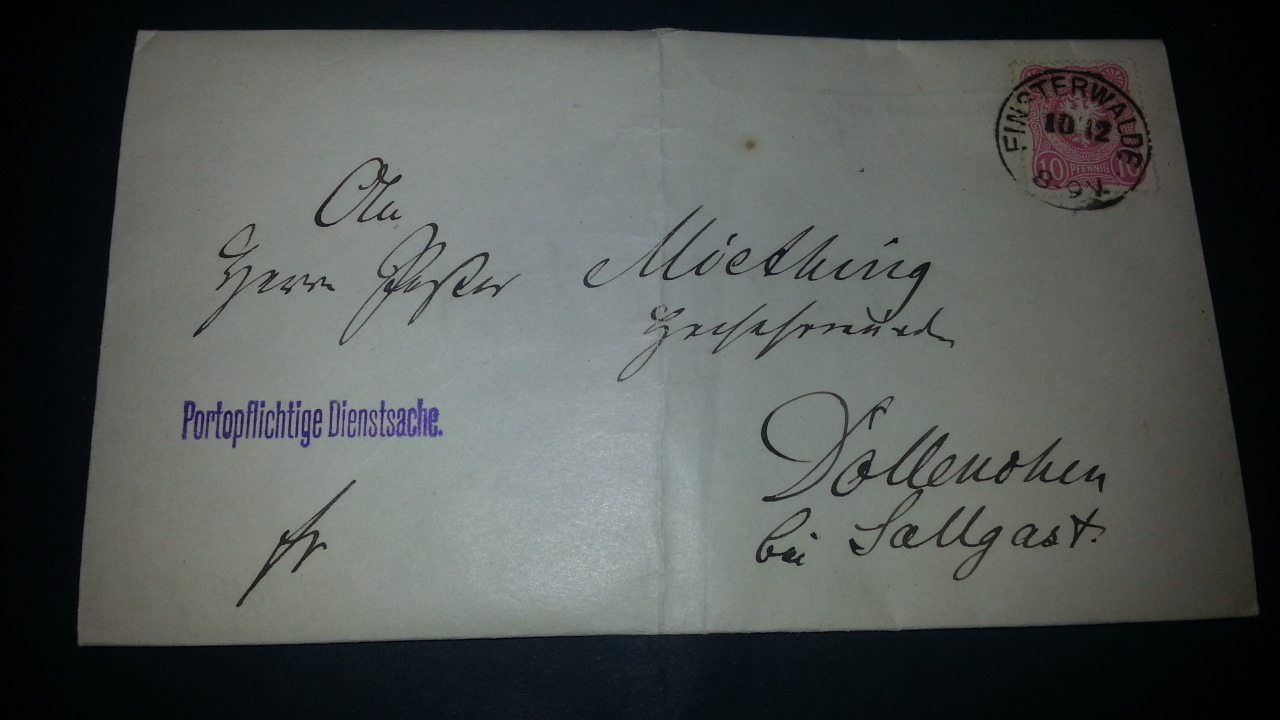 FINSTERWALDE
10 12
8-9V.
10 PFENNIG 10
An
Herrn Pastor Moething
Dollenchen
bei Sallgast.
Portopflichtige Dienstsache.
fr